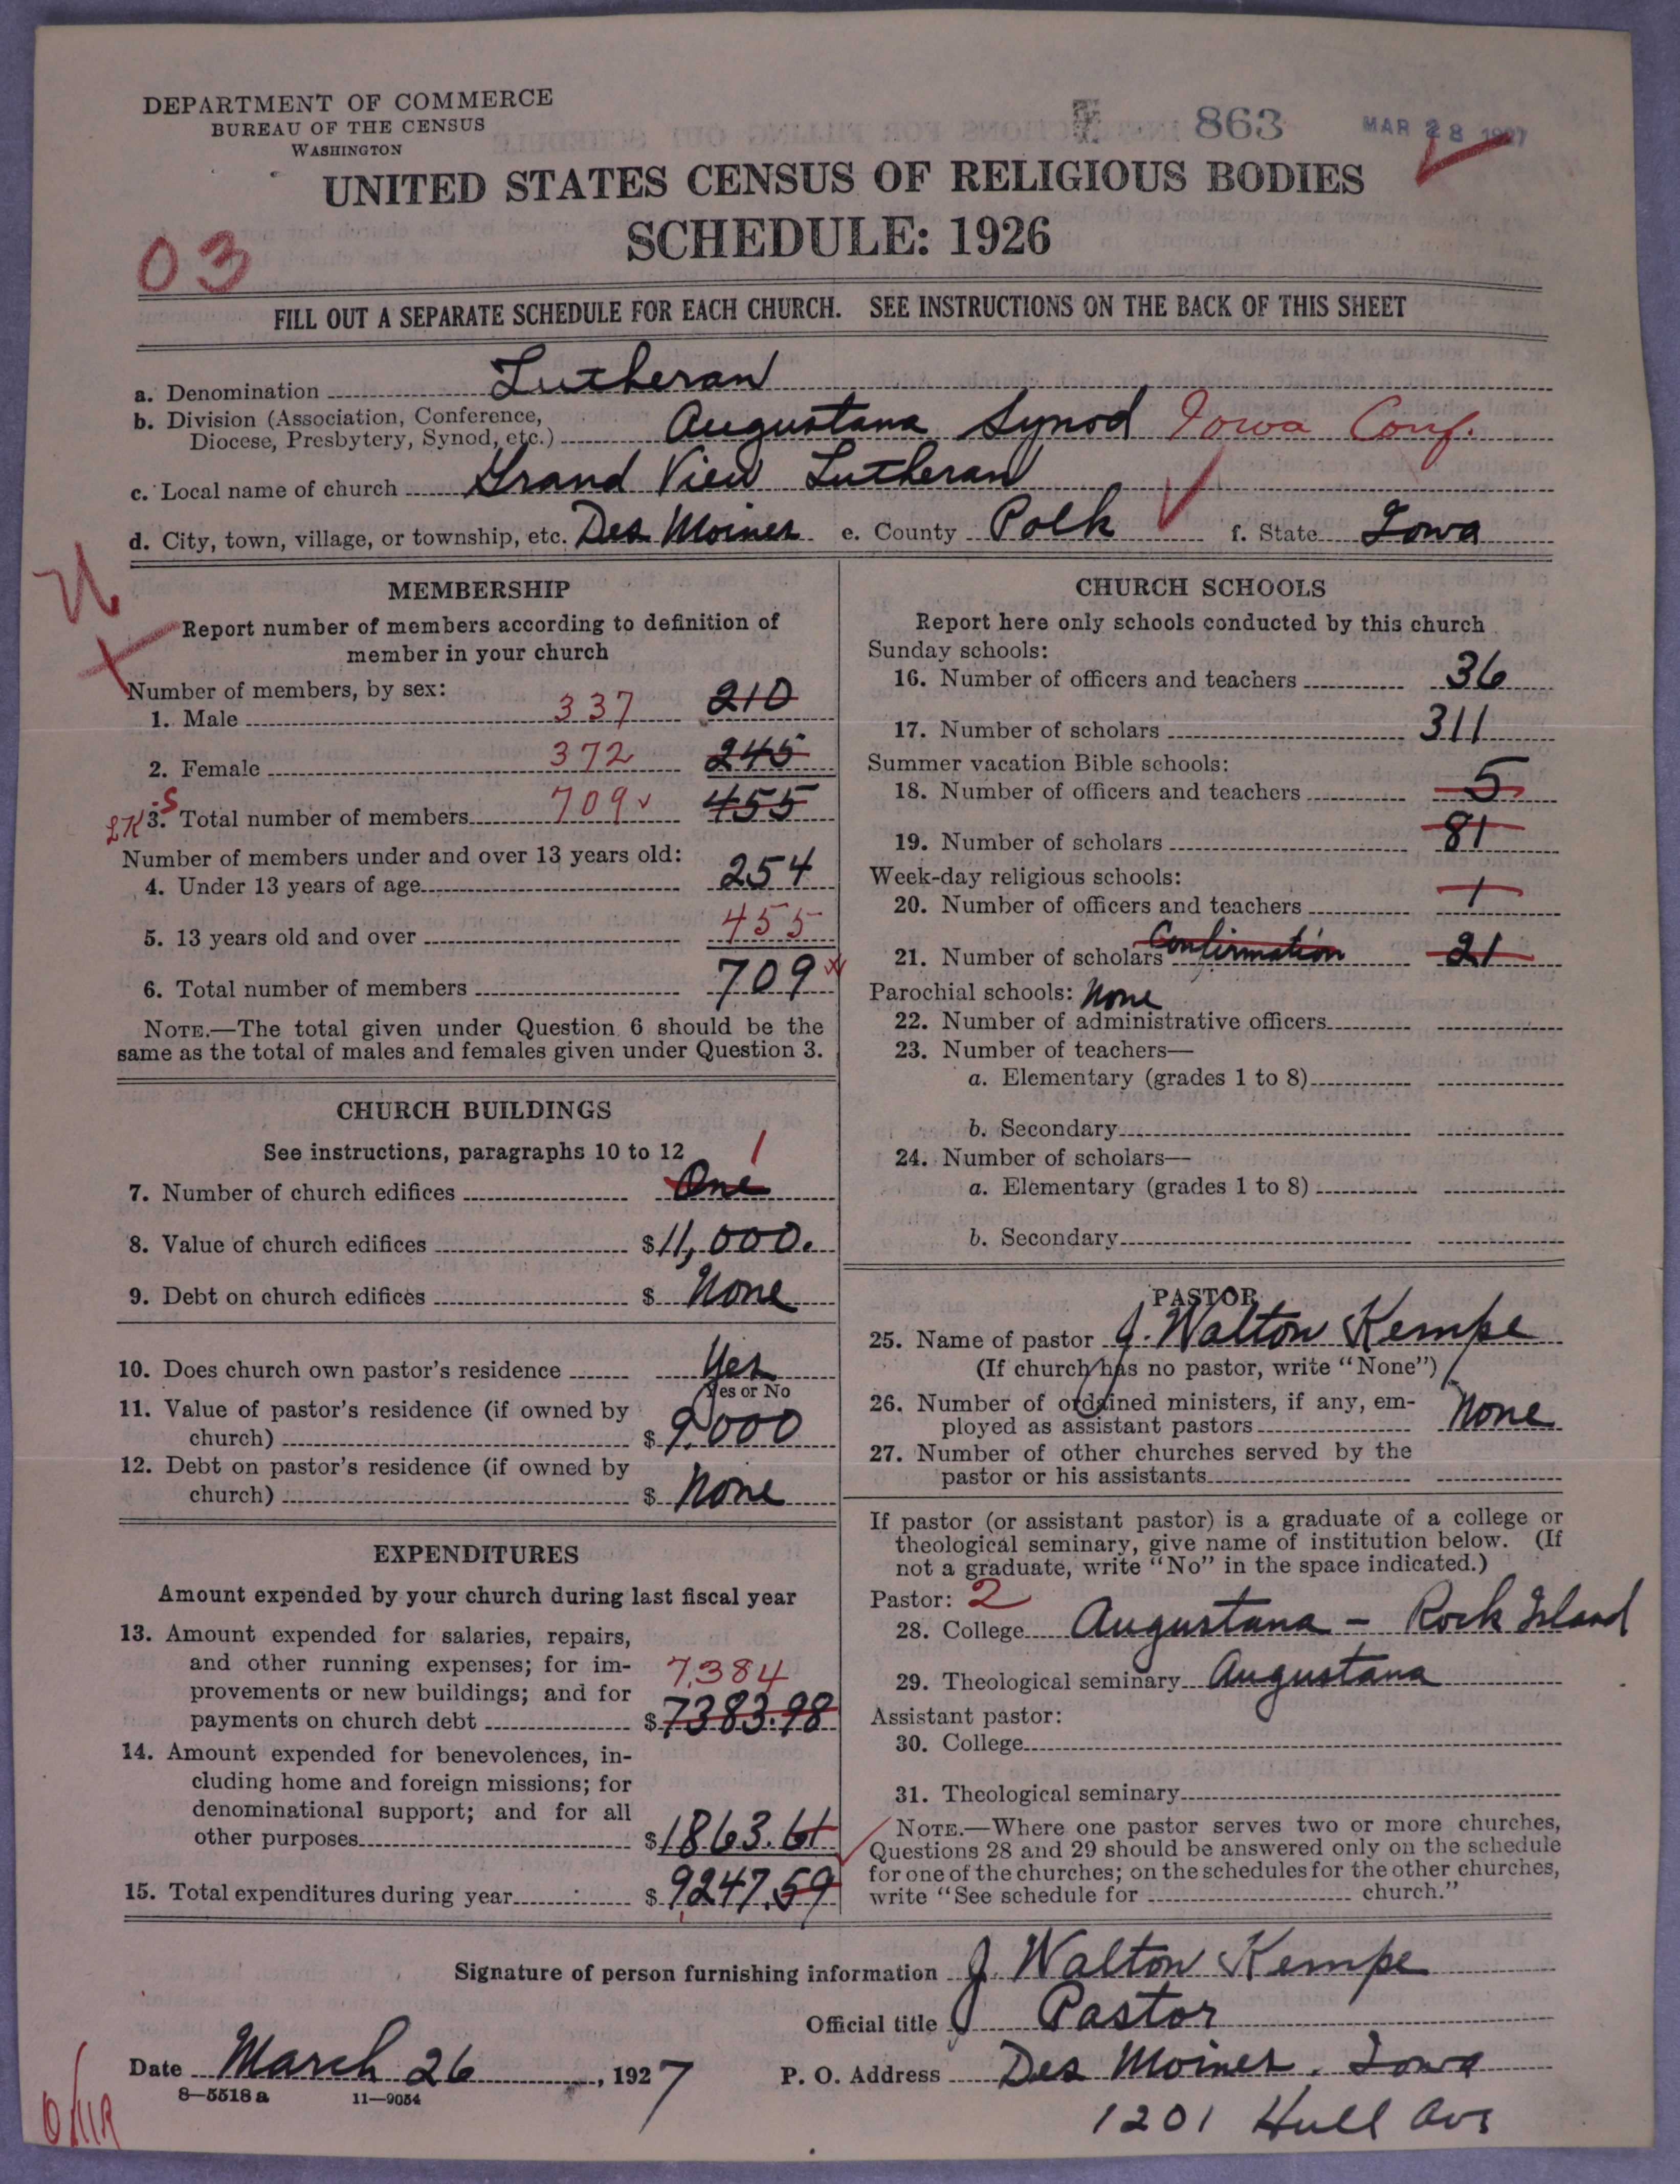 DEPARTMENT OF COMMERCE
BUREAU OF THE CENSUS
WASHINGTON
863
MAR 28 1927
UNITED STATES CENSUS OF RELIGIOUS BODIES
SCHEDULE: 1926
03
FILL OUT A SEPARATE SCHEDULE FOR EACH CHURCH. SEE INSTRUCTIONS ON THE BACK OF THIS SHEET
a. Denomination Lutheran
b. Division (Association, Conference,
Diocese, Presbytery, Synod, etc.) Augustana Synod Iowa Conf.
c. Local name of church Grand View Lutheran
d. City, town, village, or township, etc. Des Moines e. County Polk f. State Iowa
MEMBERSHIP
Report number of members according to definition of
member in your church
Number of members, by sex:
1. Male 337 210
2. Female 372 245
3. Total number of members 709 455
Number of members under and over 13 years old:
4. Under 13 years of age 254
5. 13 years old and over 455
6. Total number of members 709
NOTE.—The total given under Question 6 should be the
same as the total of males and females given under Question 3.
CHURCH BUILDINGS
See instructions, paragraphs 10 to 12
1
7. Number of church edifices One
8. Value of church edifices $11,000.
9. Debt on church edifices $ None
10. Does church own pastor's residence Yes
Yes or No
11. Value of pastor's residence (if owned by
church) $ 9,000
12. Debt on pastor's residence (if owned by
church) $ None
EXPENDITURES
Amount expended by your church during last fiscal year
13. Amount expended for salaries, repairs,
and other running expenses; for im-
provements or new buildings; and for 7,384
payments on church debt $7383.98
14. Amount expended for benevolences, in-
cluding home and foreign missions; for
denominational support; and for all
other purposes $1863.61
15. Total expenditures during year $9247.59
CHURCH SCHOOLS
Report here only schools conducted by this church
Sunday schools:
16. Number of officers and teachers 36
17. Number of scholars 311
Summer vacation Bible schools:
18. Number of officers and teachers 5
19. Number of scholars 81
Week-day religious schools:
20. Number of officers and teachers 1
21. Number of scholars Confirmation 21
Parochial schools: None
22. Number of administrative officers
23. Number of teachers—
a. Elementary (grades 1 to 8)
b. Secondary
24. Number of scholars—
a. Elementary (grades 1 to 8)
b. Secondary
PASTOR
25. Name of pastor J. Walton Kempe
(If church has no pastor, write "None")
26. Number of ordained ministers, if any, em-
ployed as assistant pastors None
27. Number of other churches served by the
pastor or his assistants
If pastor (or assistant pastor) is a graduate of a college or
theological seminary, give name of institution below. (If
not a graduate, write "No" in the space indicated.)
Pastor: 2
28. College Augustana - Rock Island
29. Theological seminary Augustana
Assistant pastor:
30. College
31. Theological seminary
NOTE.—Where one pastor serves two or more churches,
Questions 28 and 29 should be answered only on the schedule
for one of the churches; on the schedules for the other churches,
write "See schedule for church."
Signature of person furnishing information J. Walton Kempe
Official title Pastor
Date March 26, 1927 P. O. Address Des Moines, Iowa
8—5518a 11—9054
1201 Hull Ave